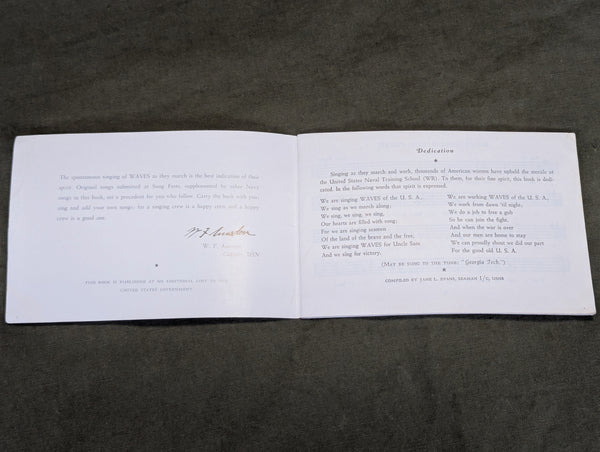 The spontaneous singing of WAVES as they march is the best indication of their
spirit. Original songs submitted at Song Fests, supplemented by other Navy
songs in this book, set a precedent for you who follow. Carry the book with you;
sing and add your own songs; for a singing crew is a happy crew and a happy
crew is a good one.
W. F. Amsden
Captain, USN
THIS BOOK IS PUBLISHED AT NO ADDITIONAL COST TO THE
UNITED STATES GOVERNMENT.
Dedication
Singing as they march and work, thousands of American women have upheld the morale at
the United States Naval Training School (WR). To them, for their fine spirit, this book is dedi-
cated. In the following words that spirit is expressed.
We are singing WAVES of the U. S. A.,
We sing as we march along;
We sing, we sing, we sing,
Our hearts are filled with song;
For we are singing seamen
Of the land of the brave and the free,
We are singing WAVES for Uncle Sam
And we sing for victory.
We are working WAVES of the U. S. A.,
We work from dawn 'til night;
We do a job to free a gob
So he can join the fight.
And when the war is over
And our men are home to stay
We can proudly say we did our part
For the good old U. S. A.
(MAY BE SUNG TO THE TUNE: "Georgia Tech.")
COMPILED BY JANE L. EVANS, SEAMAN 1/C, USNR